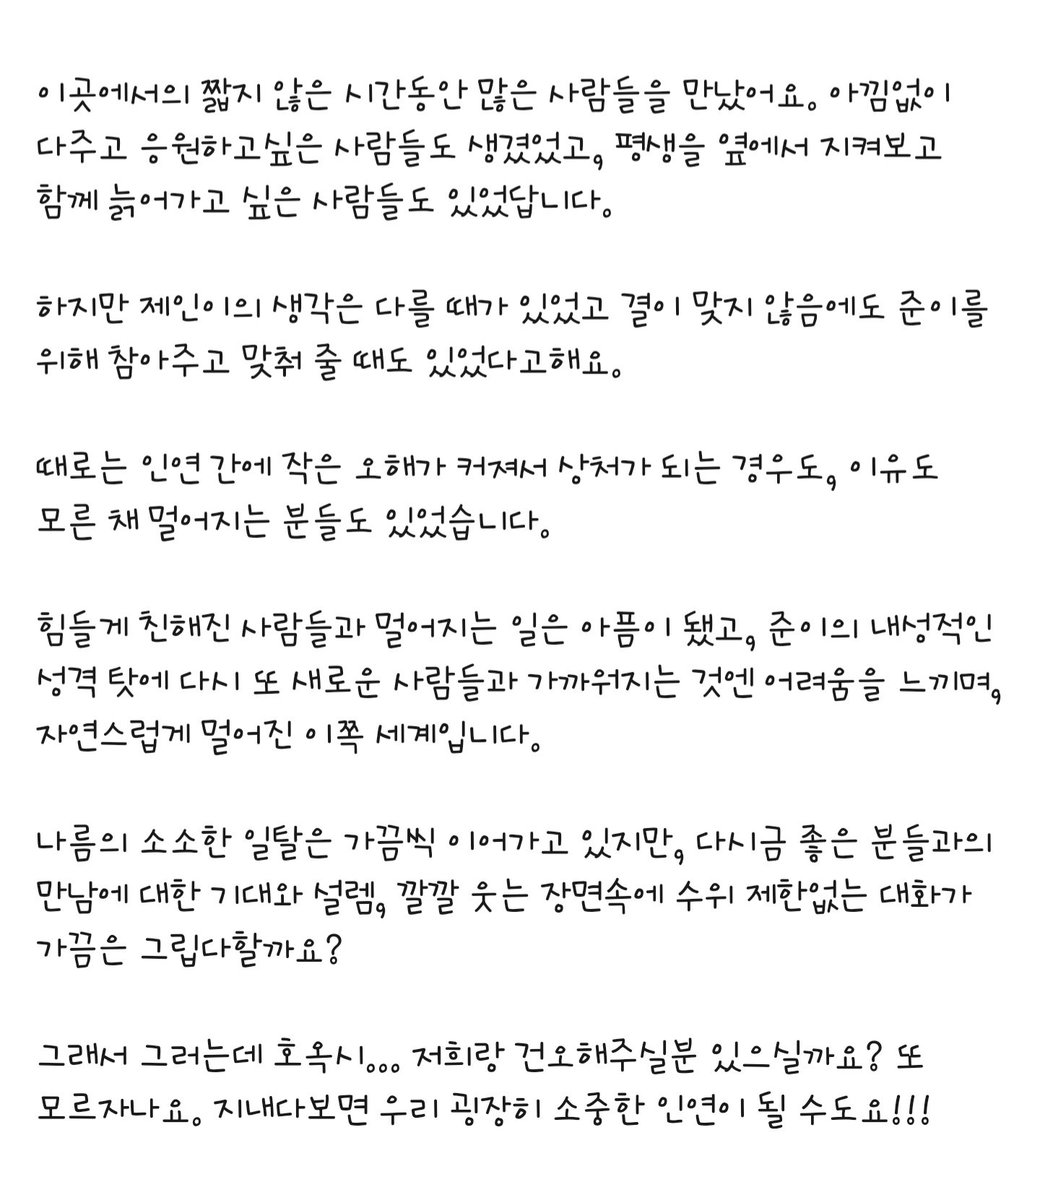 이곳에서의 짧지 않은 시간동안 많은 사람들을 만났어요. 아낌없이
다주고 응원하고싶은 사람들도 생겼었고, 평생을 옆에서 지켜보고
함께 늙어가고 싶은 사람들도 있었답니다.
하지만 제인이의 생각은 다를 때가 있었고 결이 맞지 않음에도 준이를
위해 참아주고 맞춰 줄 때도 있었다고해요.
때로는 인연 간에 작은 오해가 커져서 상처가 되는 경우도, 이유도
모른 채 멀어지는 분들도 있었습니다.
힘들게 친해진 사람들과 멀어지는 일은 아픔이 됐고, 준이의 내성적인
성격 탓에 다시 또 새로운 사람들과 가까워지는 것엔 어려움을 느끼며,
자연스럽게 멀어진 이쪽 세계입니다.
나름의 소소한 일탈은 가끔씩 이어가고 있지만, 다시금 좋은 분들과의
만남에 대한 기대와 설렘, 깔깔 웃는 장면속에 수위 제한없는 대화가
가끔은 그립다할까요?
그래서 그러는데 혹옥시... 저희랑 건오해주실분 있으실까요? 또
모르자나요. 지내다보면 우리 굉장히 소중한 인연이 될 수도요!!!